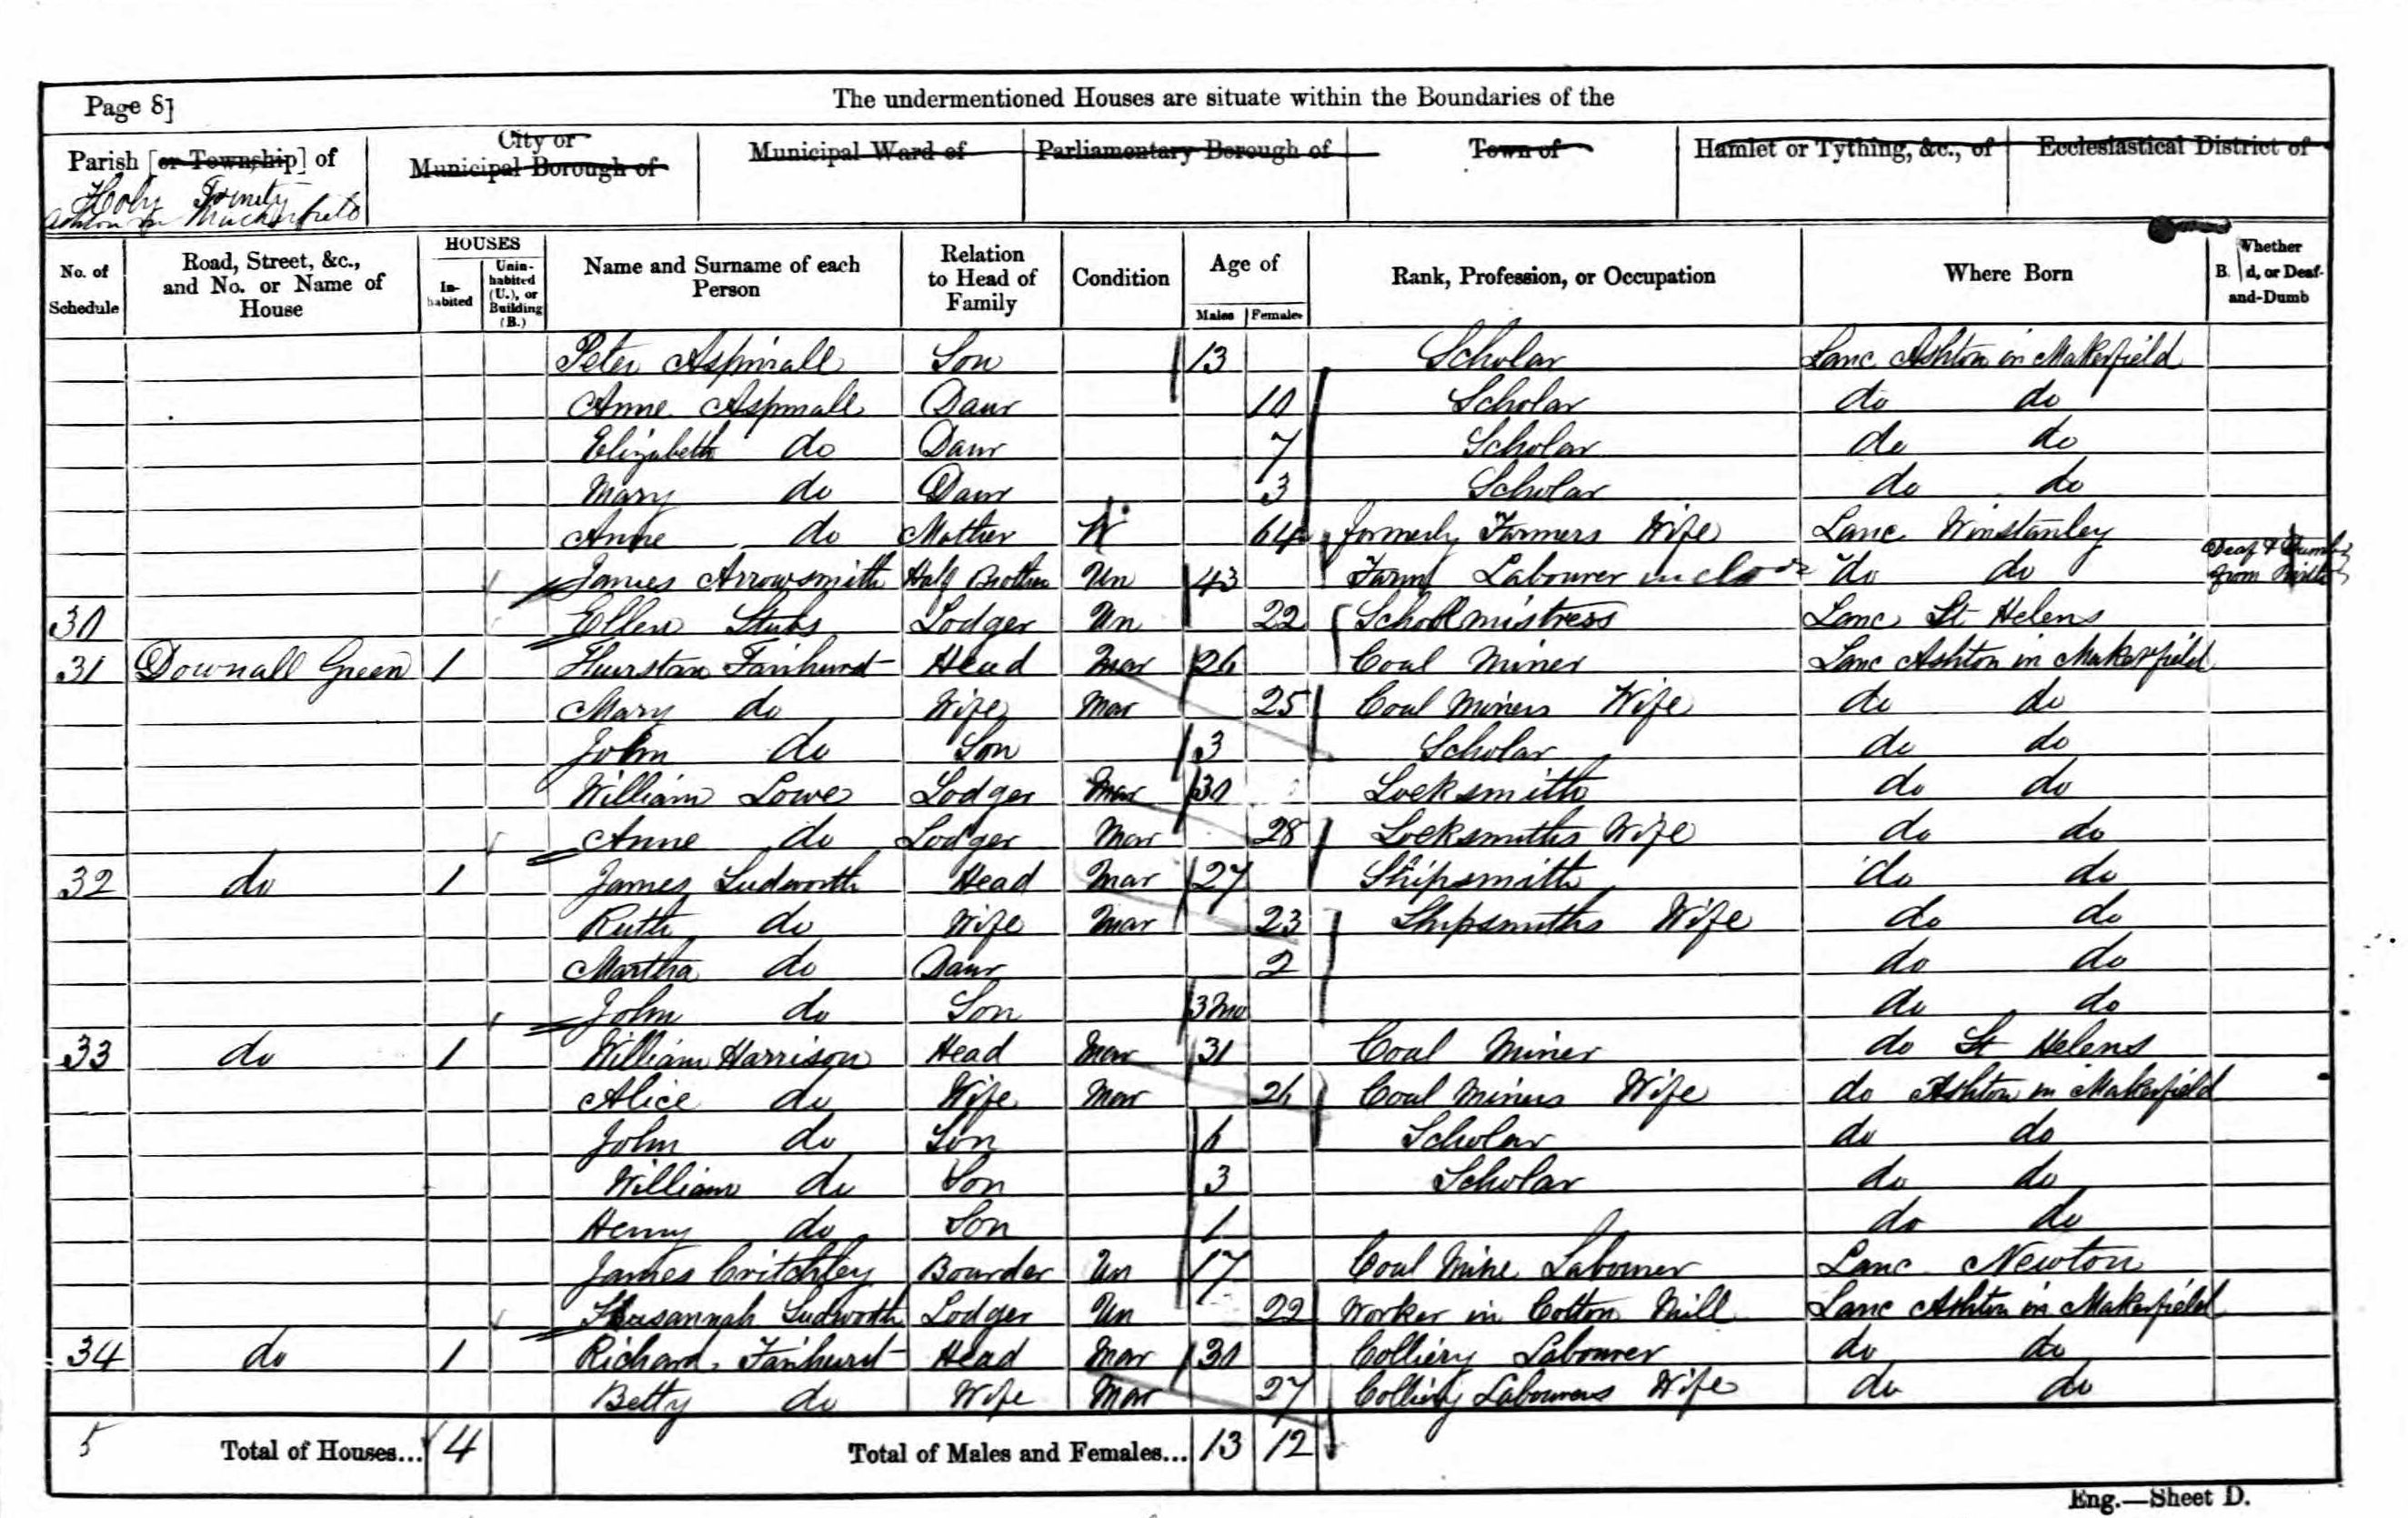 Page 8]
The undermentioned Houses are situate within the Boundaries of the
Parish [or Township] of Holy Trinity Ashton in Mackerfield
City or Municipal Borough of
Municipal Ward of
Parliamentary Borough of
Town of
Hamlet or Tything, &c., of
Ecclesiastical District of
No. of Schedule
Road, Street, &c., and No. or Name of House
HOUSES
In-habited
Unin-habited (U.), or Building (B.)
Name and Surname of each Person
Relation to Head of Family
Condition
Age of
Males Females
Rank, Profession, or Occupation
Where Born
Whether B. d, or Deaf-and-Dumb
Peter Aspinall Son 13 Scholar Lanc Ashton in Makerfield
Anne Aspinall Daur 10 Scholar do do
Elizabeth do Daur 7 Scholar do do
Mary do Daur 3 Scholar do do
Anne do Mother W 64 formerly Farmers Wife Lanc Winstanley
James Arrowsmith Half Brother Un 43 Farm Labourer do do Deaf & Dumb from
30 Ellen Stubs Lodger Un 22 Schoolmistress Lanc St Helens
31 Downall Green 1 Thurstan Fairhurst Head Mar 26 Coal Miner Lanc Ashton in Makerfield
Mary do Wife Mar 25 Coal Miners Wife do do
John do Son 3 Scholar do do
William Lowe Lodger Mar 30 Locksmith do do
Anne do Lodger Mar 28 Locksmiths Wife do do
32 do 1 James Ludworth Head Mar 27 Shipsmith do do
Ruth do Wife Mar 23 Shipsmiths Wife do do
Martha do Daur 2 do do
John do Son 3 Mo do do
33 do 1 William Harrison Head Mar 31 Coal Miner do St Helens
Alice do Wife Mar 26 Coal Miners Wife do Ashton in Makerfield
John do Son 6 Scholar do do
William do Son 3 Scholar do do
Henry do Son 1 do do
James Critchley Boarder Un 17 Coal Mine Labourer Lanc Newton
Susannah Ludworth Lodger Un 22 Worker in Cotton Mill Lanc Ashton in Makerfield
34 do 1 Richard Fairhurst Head Mar 30 Colliery Labourer do do
Betty do Wife Mar 27 Colliery Labourers Wife do do
5 Total of Houses... 4 Total of Males and Females... 13 12
Eng.—Sheet D.